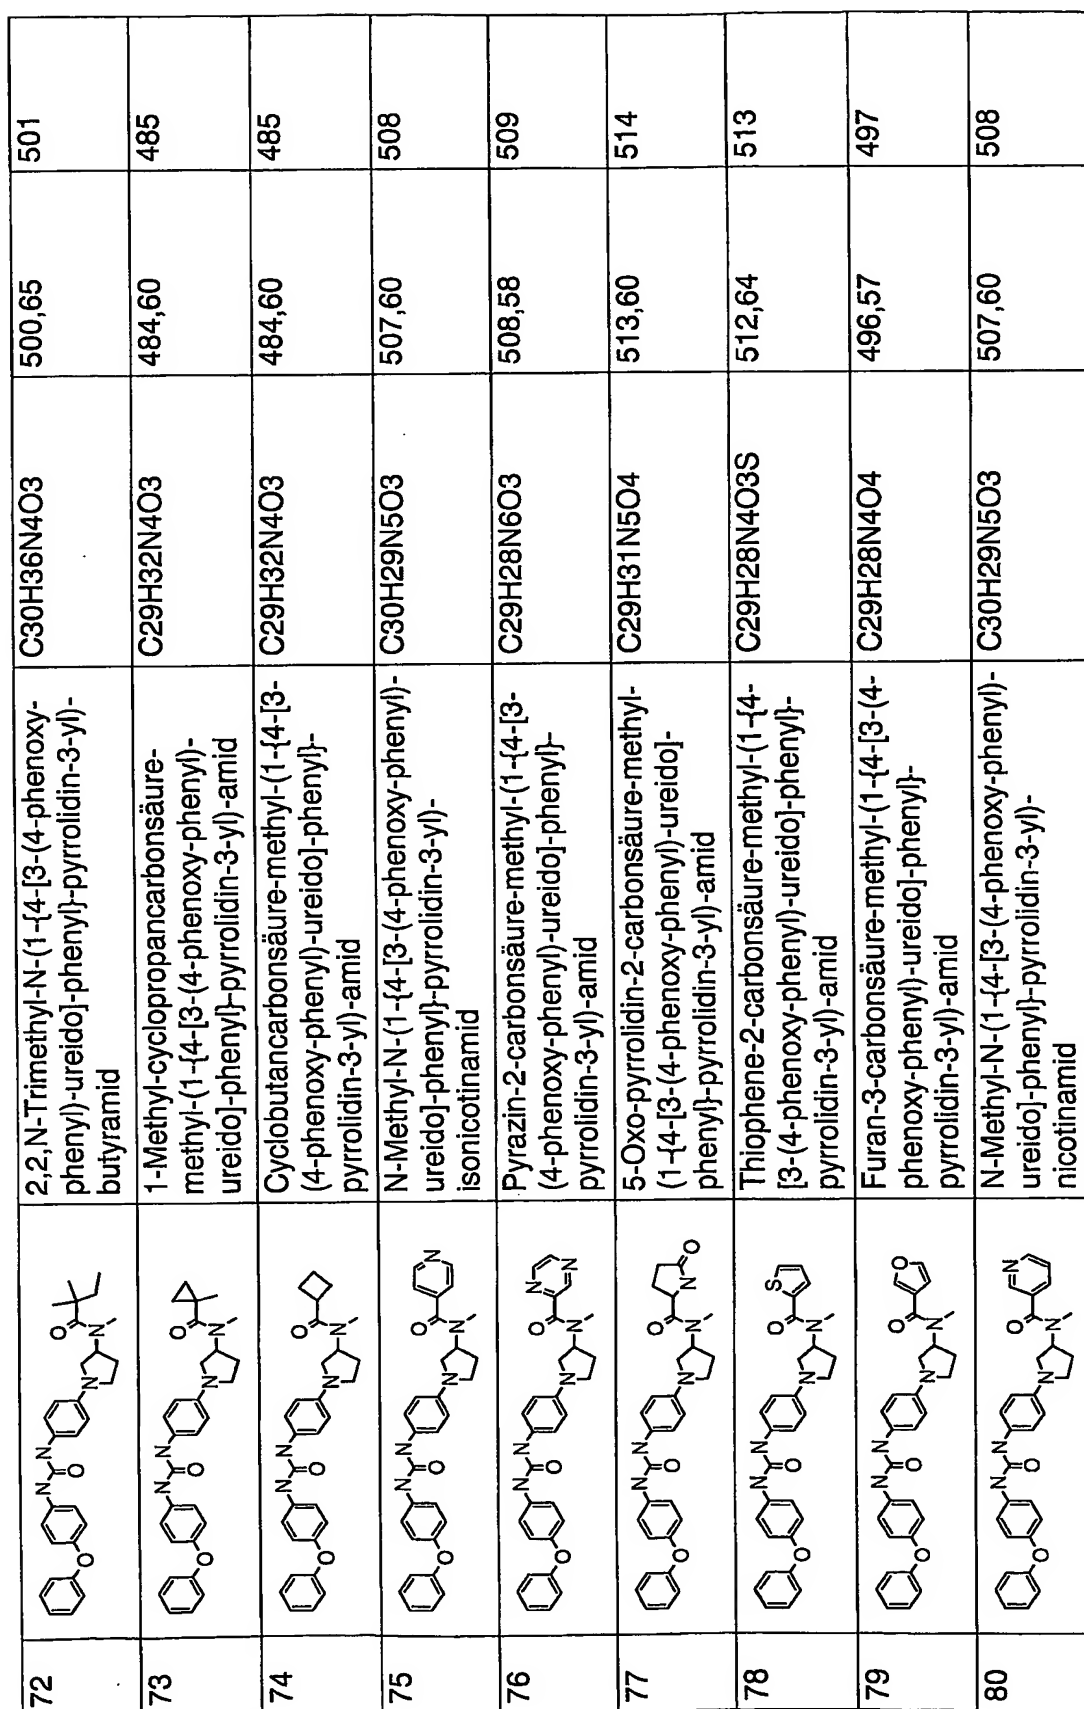 72
2,2,N-Trimethyl-N-(1-{4-[3-(4-phenoxy-
phenyl)-ureido]-phenyl}-pyrrolidin-3-yl)-
butyramid
C30H36N4O3
500,65
501
73
1-Methyl-cyclopropancarbonsäure-
methyl-(1-{4-[3-(4-phenoxy-phenyl)-
ureido]-phenyl}-pyrrolidin-3-yl)-amid
C29H32N4O3
484,60
485
74
Cyclobutancarbonsäure-methyl-(1-{4-[3-
(4-phenoxy-phenyl)-ureido]-phenyl}-
pyrrolidin-3-yl)-amid
C29H32N4O3
484,60
485
75
N-Methyl-N-(1-{4-[3-(4-phenoxy-phenyl)-
ureido]-phenyl}-pyrrolidin-3-yl)-
isonicotinamid
C30H29N5O3
507,60
508
76
Pyrazin-2-carbonsäure-methyl-(1-{4-[3-
(4-phenoxy-phenyl)-ureido]-phenyl}-
pyrrolidin-3-yl)-amid
C29H28N6O3
508,58
509
77
5-Oxo-pyrrolidin-2-carbonsäure-methyl-
(1-{4-[3-(4-phenoxy-phenyl)-ureido]-
phenyl}-pyrrolidin-3-yl)-amid
C29H31N5O4
513,60
514
78
Thiophene-2-carbonsäure-methyl-(1-{4-
[3-(4-phenoxy-phenyl)-ureido]-phenyl}-
pyrrolidin-3-yl)-amid
C29H28N4O3S
512,64
513
79
Furan-3-carbonsäure-methyl-(1-{4-[3-(4-
phenoxy-phenyl)-ureido]-phenyl}-
pyrrolidin-3-yl)-amid
C29H28N4O4
496,57
497
80
N-Methyl-N-(1-{4-[3-(4-phenoxy-phenyl)-
ureido]-phenyl}-pyrrolidin-3-yl)-
nicotinamid
C30H29N5O3
507,60
508